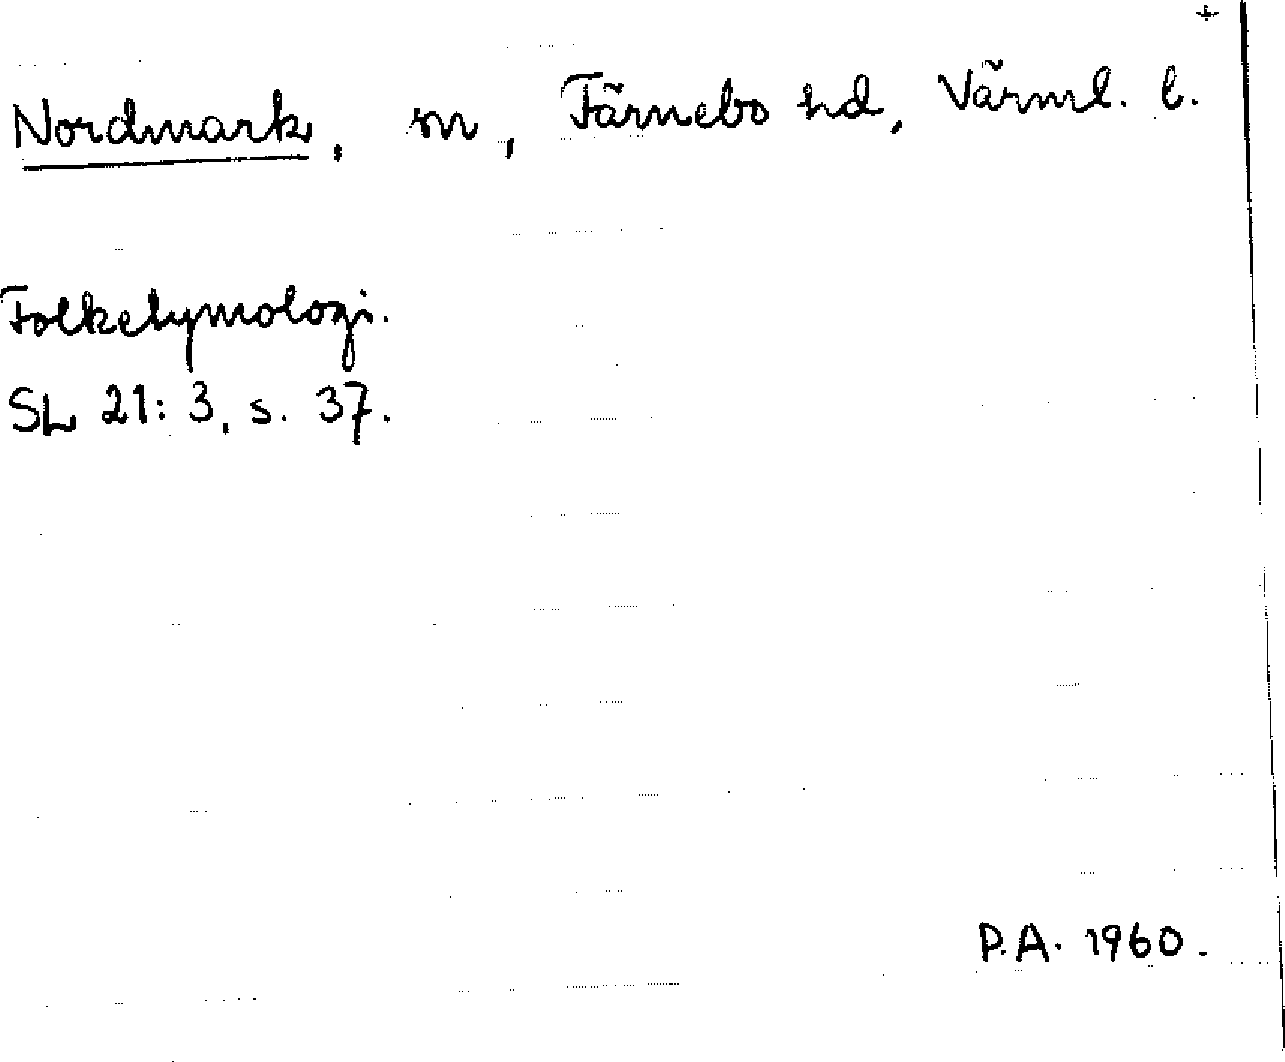 +
Nordmark, sn, Färnebo hd, Värml. l.
Folketymologi.
SL 21: 3, s. 37.
P.A. 1960.